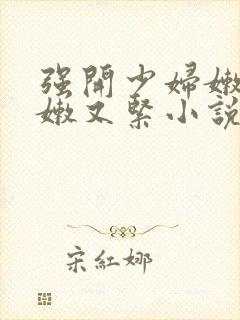 强開少婦嫩
嫩又緊小説
宋紅娜